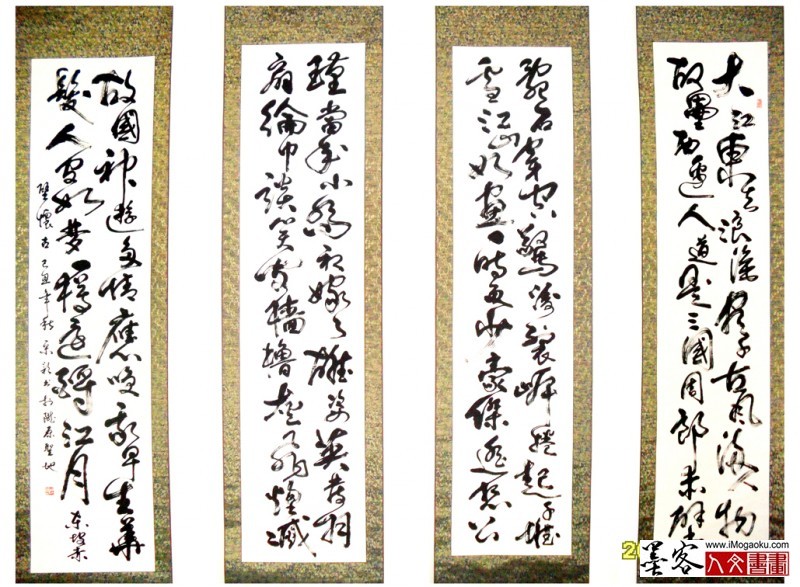 大江東去浪淘盡千古風流人物
故壘西邊人道是三國周郎赤壁
亂石穿空驚濤裂岸捲起千堆
雪江山如畫一時多少豪傑遙想公
瑾當年小喬初嫁了雄姿英發羽
扇綸巾談笑間檣櫓灰飛煙滅
故國神遊多情應笑我早生華
髮人間如夢一樽還酹江月 東坡赤
壁懷古 己丑年秋 書於隴原聖地
墨客
www.iMogaoku.com
人文書畫